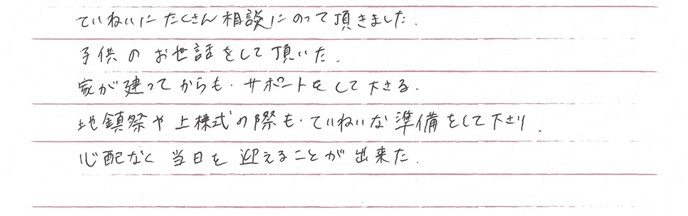 ていねいにたくさん相談にのって頂きました.
子供のお世話をして頂いた.
家が建ってからも、サポートをして下さる.
地鎮祭や上棟式の際も、ていねいな準備をして下さり.
心配なく当日を迎えることが出来た.